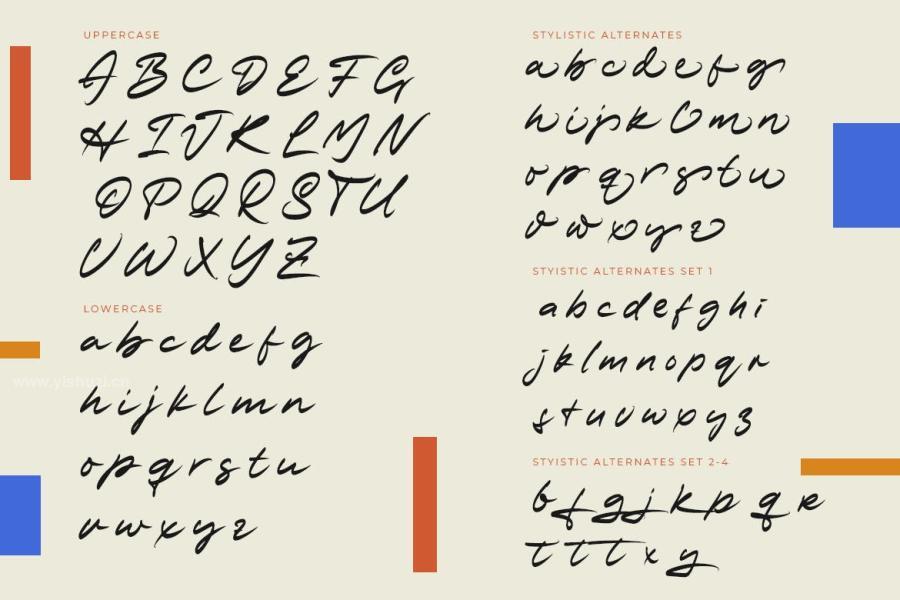 UPPERCASE
A B C D E F G
H I J K L M N
O P Q R S T U
V W X Y Z
LOWERCASE
a b c d e f g
h i j k l m n
o p q r s t u
v w x y z
www.yishuzi.cn
STYLISTIC ALTERNATES
a b c d e f g
h i j s k l m n
o p q r s t u
v w x y z
STYISTIC ALTERNATES SET 1
a b c d e f g h i
j k l m n o p q r
s t u v w x y z
STYISTIC ALTERNATES SET 2-4
b f g j k p q r
t t t x y